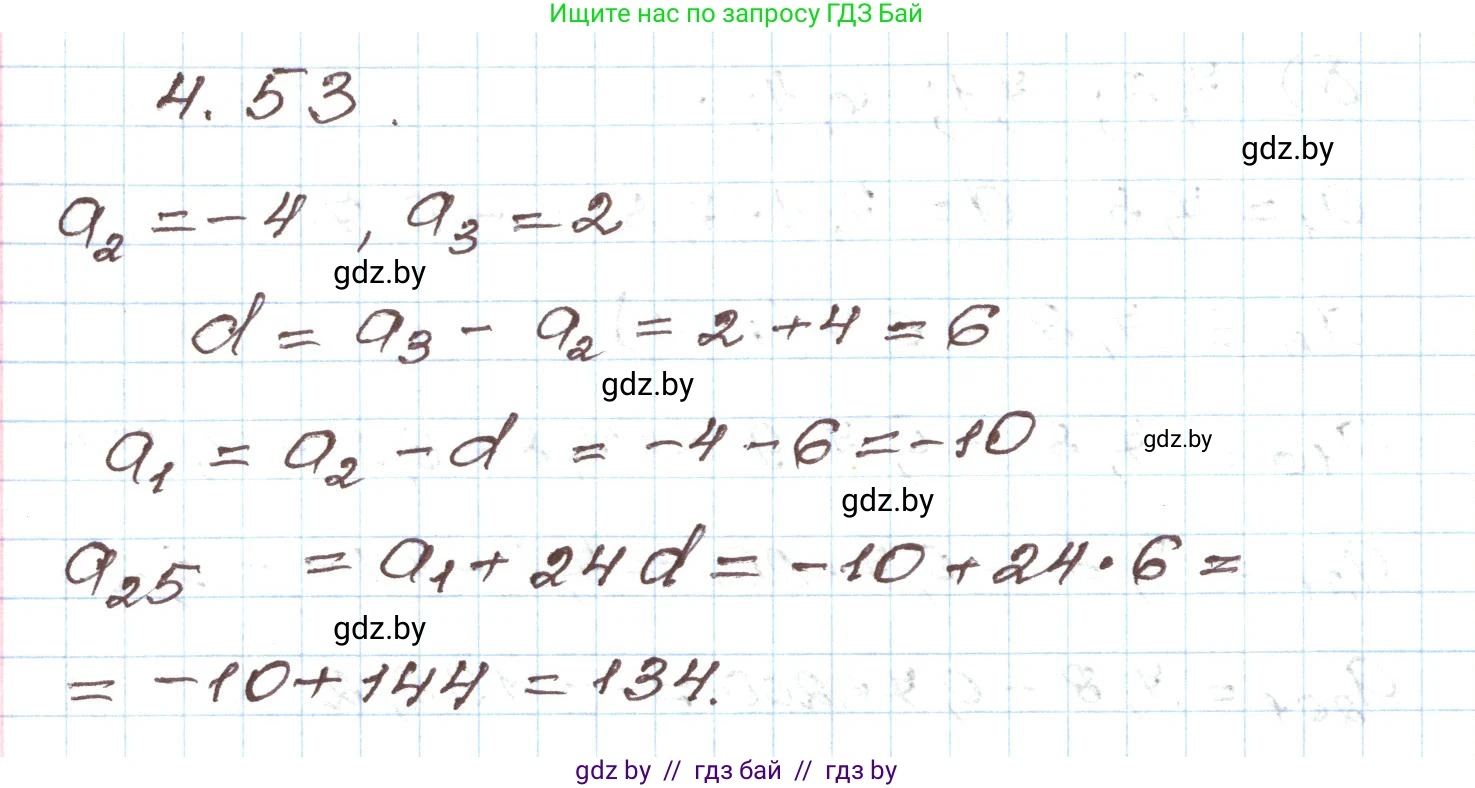 Ищите нас по запросу ГДЗ Бай
4.53.
gdz.by
a₂ = -4, a₃ = 2
gdz.by
d = a₃ - a₂ = 2 + 4 = 6
gdz.by
a₁ = a₂ - d = -4 - 6 = -10
gdz.by
gdz.by
a₂₅ = a₁ + 24d = -10 + 24 · 6 =
gdz.by
= -10 + 144 = 134.
gdz by // гдз бай // гдз by